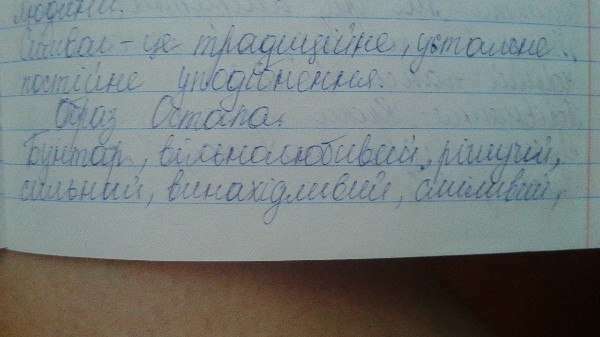 людини.
Символ – це традиційне, усталене,
постійне уподібнення.
Образ Остапа.
Бунтар, вільналюбивий, рішучій,
сильный, винахідливий, сміливий,